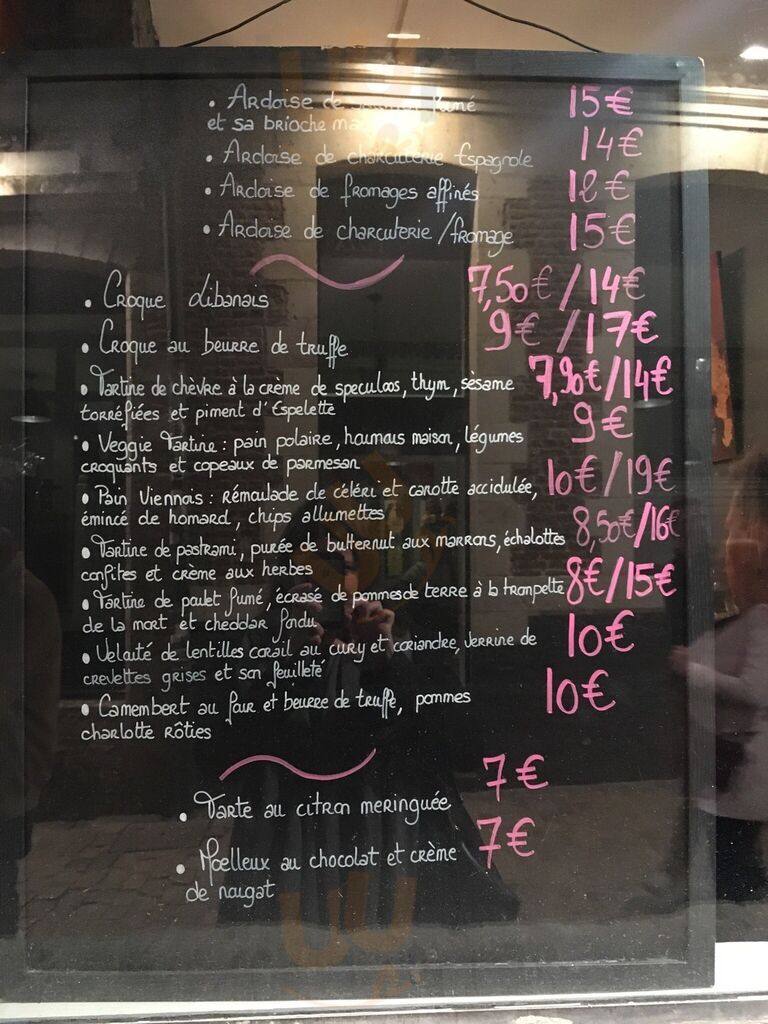 • Ardoise de fumé 15€
et sa brioche
• Ardoise de charcuterie Espagnole 14€
• Ardoise de fromages affinés 12€
• Ardoise de charcuterie/fromage 15€
• Croque Libanais 7,50€/14€
• Croque au beurre de truffe 9€/17€
• Tartine de chèvre à la crème de speculoos, thym, sèsame 7,90€/14€
torréfiées et piment d'Espelette
• Veggie Tartine : pain polaire, houmous maison, légumes 9€
croquants et copeaux de parmesan
• Pain Viennois : rémoulade de céleri et carotte accidulée, 10€/19€
émincé de homard, chips allumettes
• Tartine de pastrami, purée de butternut aux marrons, échalottes 8,50€/16€
confites et crème aux herbes
• Tartine de poulet fumé, écrasé de pommes de terre à la trompette 8€/15€
de la mort et cheddar fondu
• Velouté de lentilles corail au cury et coriandre, verrine de 10€
crevettes grises et son feuilleté
• Camembert au four et beurre de truffe, pommes 10€
charlotte rôties
• Tarte au citron meringuée 7€
• Moelleux au chocolat et crème 7€
de nougat